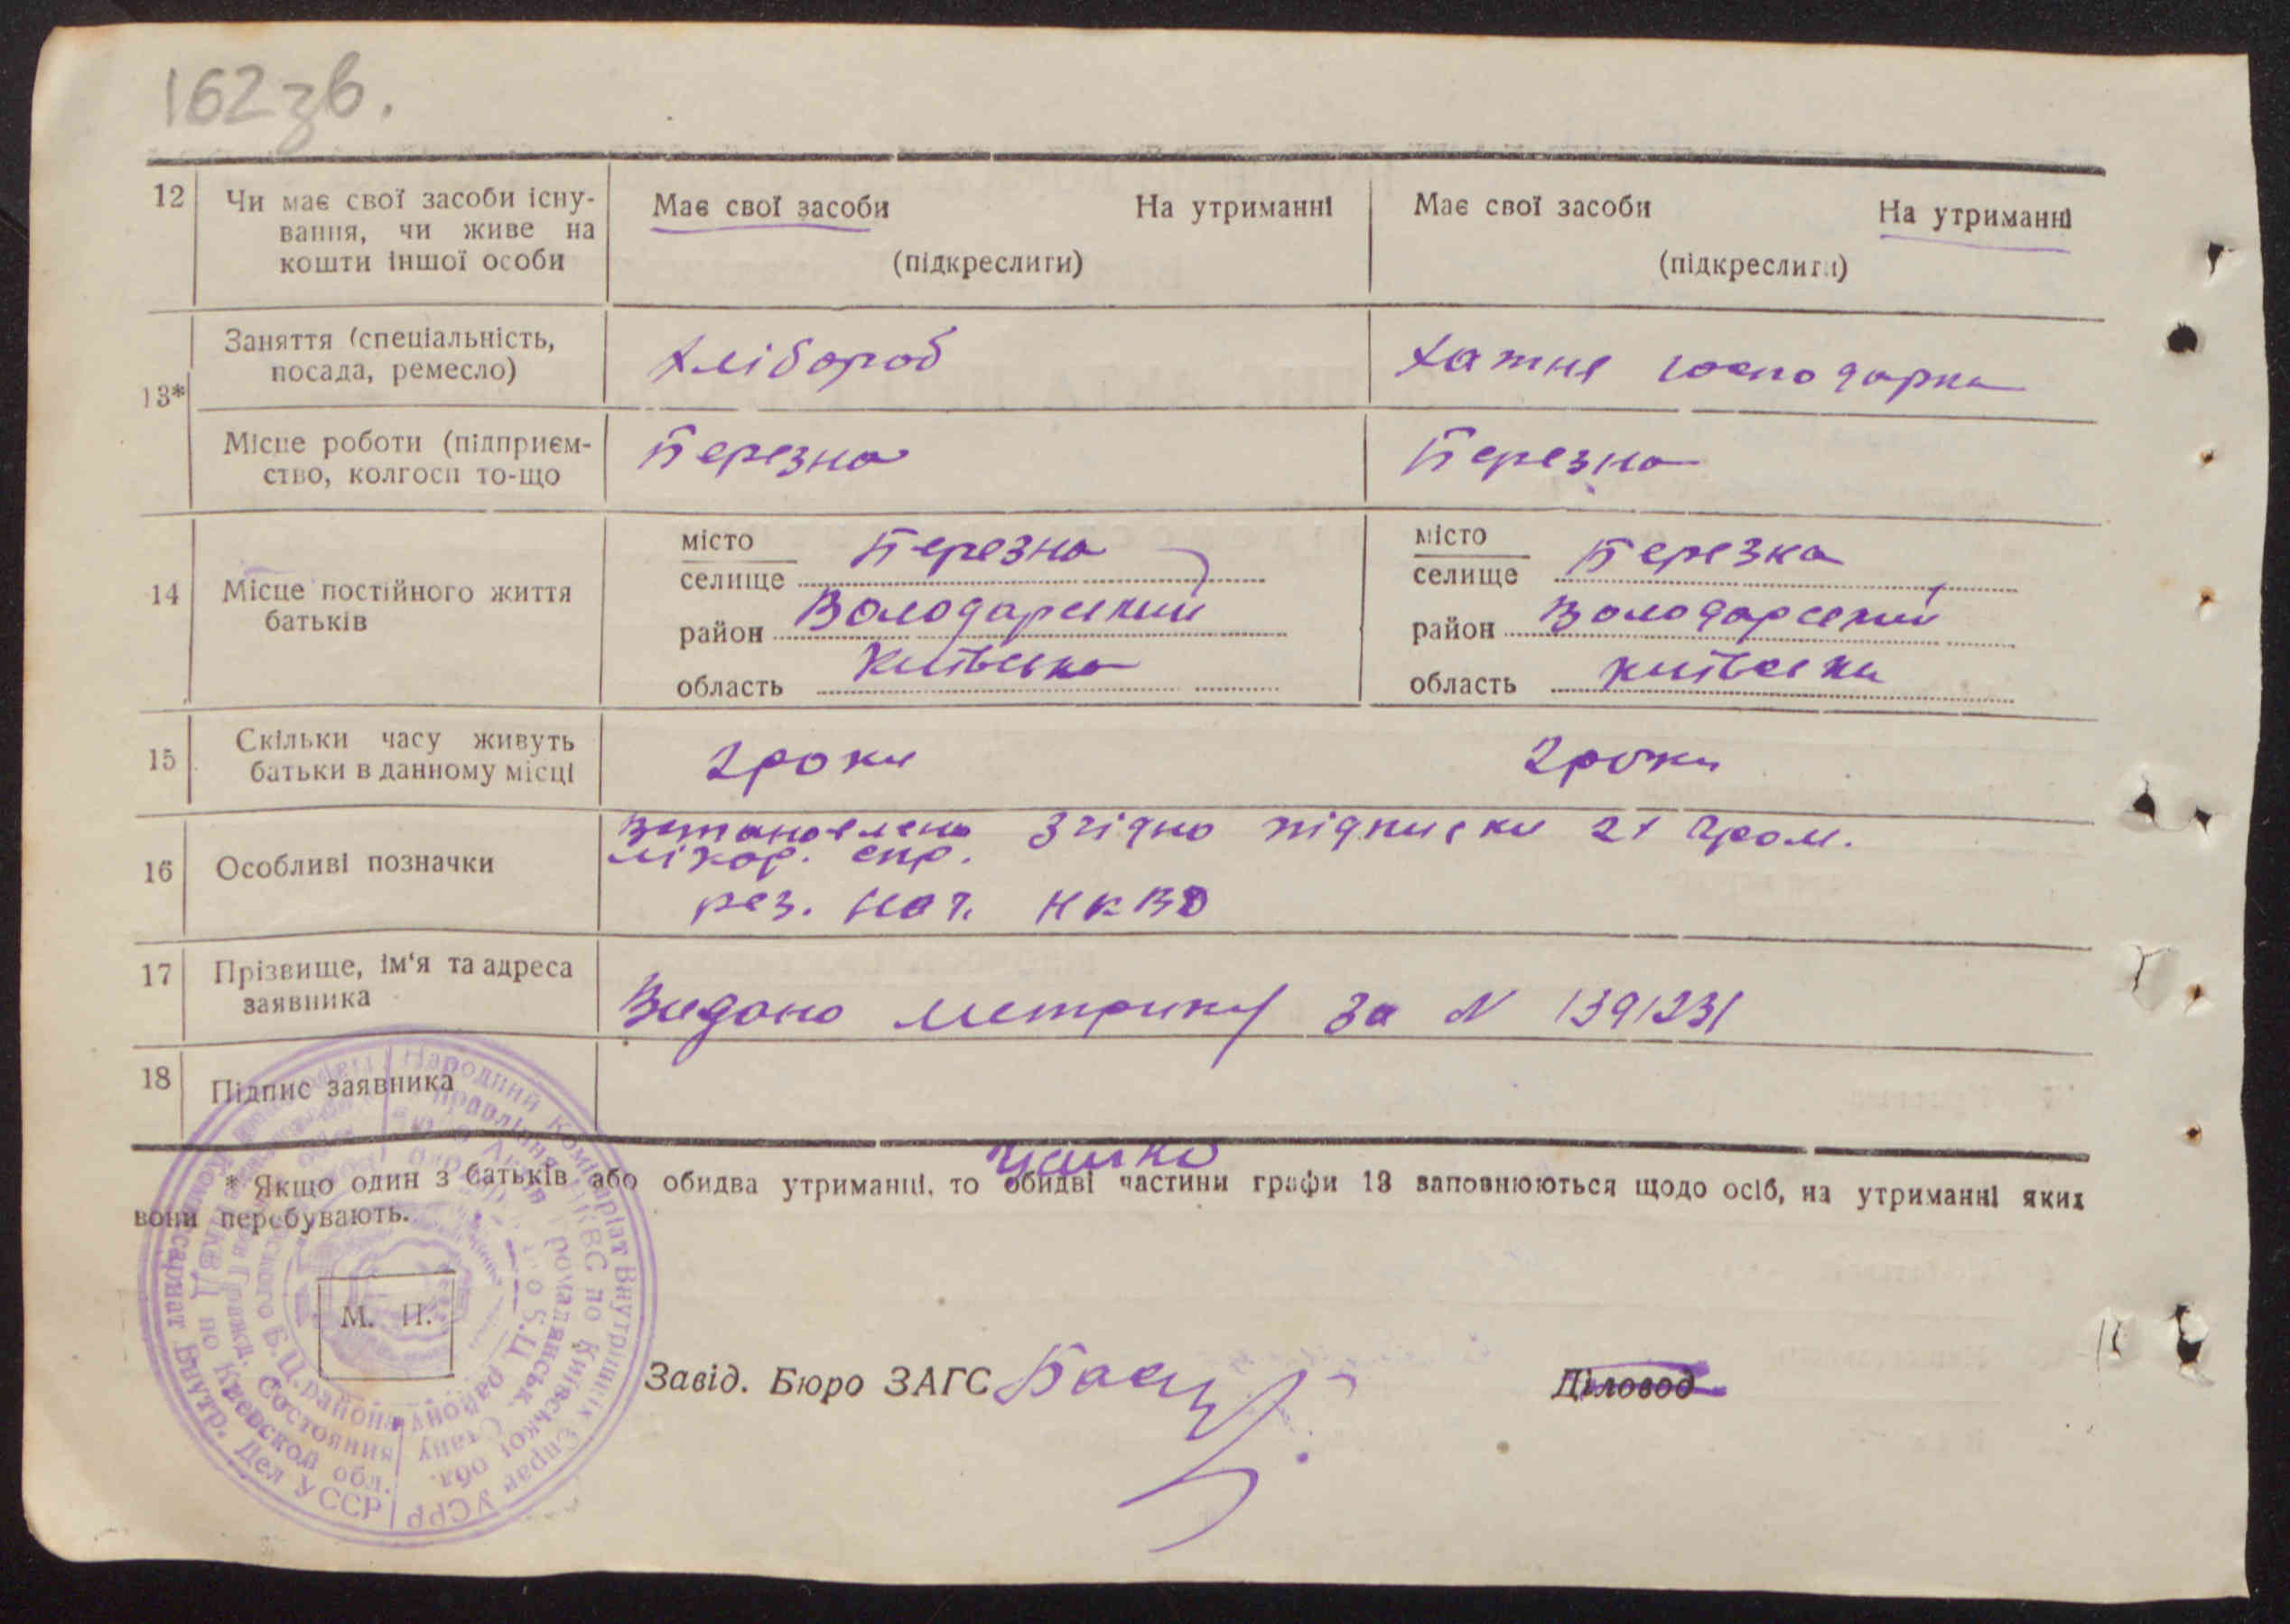 162 зв.
12 Чи має свої засоби існу-
вання, чи живе на
кошти іншої особи
Має свої засоби На утриманні
(підкреслити)
Має свої засоби На утриманні
(підкреслити)
13*
Заняття (спеціальність,
посада, ремесло)
Хлібороб
Хатня господарка
Місце роботи (підприєм-
ство, колгосп то-що
Березна
Березна
14 Місце постійного життя
батьків
місто
селище Березна
район Володарський
область Київська
місто
селище Березна
район Володарський
область Київська
15 Скільки часу живуть
батьки в данному місці
2 роки
2 роки
16 Особливі позначки
Встановлено згідно підписки 2х гром.
лікар. спр.
рез. нач. НКВД
17 Прізвище, ім'я та адреса
заявника
Видано метрику за N 1391231
18 Підпис заявника
* Якщо один з батьків або обидва утриманці, то обидві частини графи 13 заповнюються щодо осіб, на утриманні яких
вони перебувають.
М. П.
Народний Комісаріат Внутрішніх Справ УСРР
Внутр. Дел УССР
по Киевской обл.
Завід. Бюро ЗАГС
Діловод